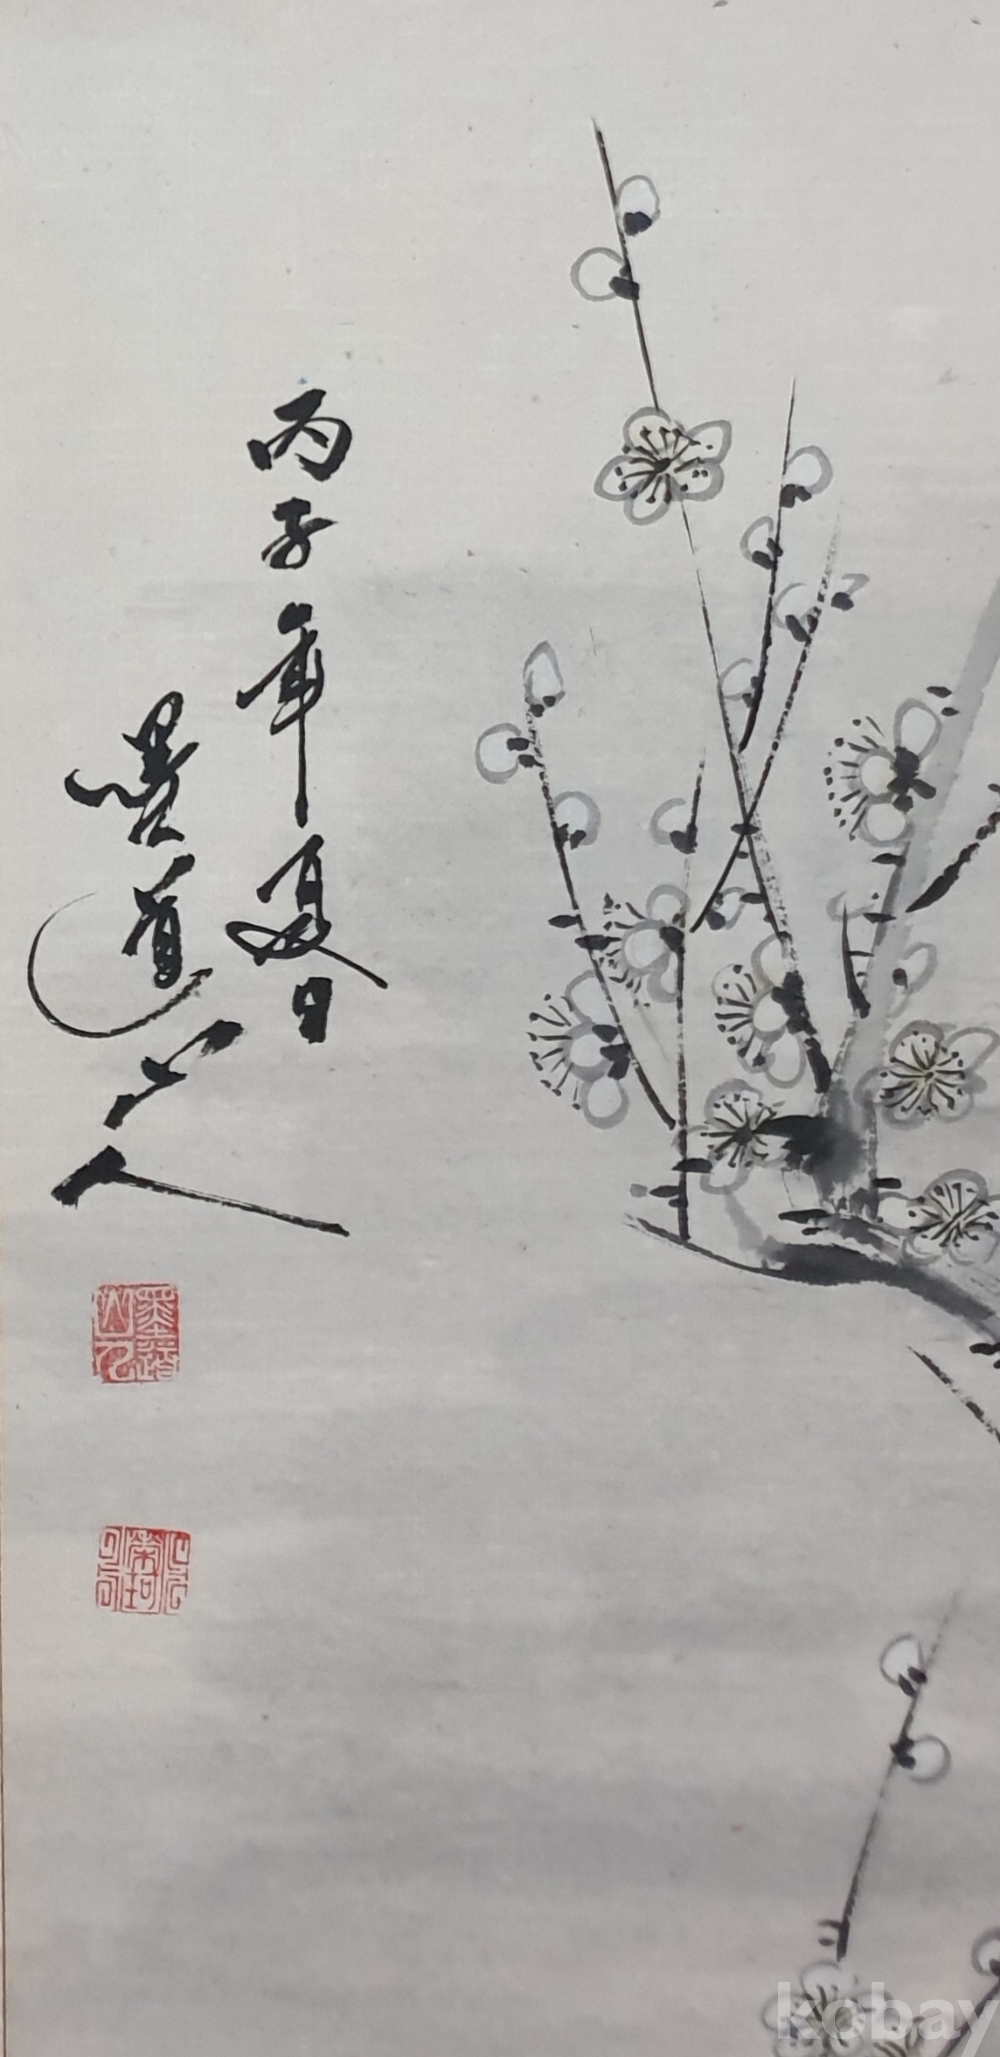 丙子年夏日
墨道山人
kobay